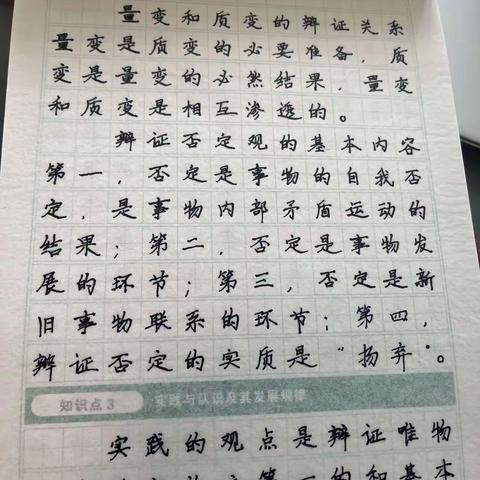 量变和质变的辩证关系
量变是质变的必要准备，质
变是量变的必然结果，量变
和质变是相互渗透的。
辩证否定观的基本内容
第一，否定是事物的自我否
定，是事物内部矛盾运动的
结果；第二，否定是事物发
展的环节；第三，否定是新
旧事物联系的环节；第四，
辩证否定的实质是“扬弃”。
知识点3 实践与认识及其发展规律
实践的观点是辩证唯物
第一的和基本